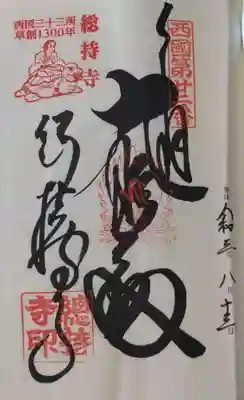 西國第廿二番
大悲殿
総持寺
西国三十三所
草創1300年
総持寺
總持
寺印
令和三 八 十三